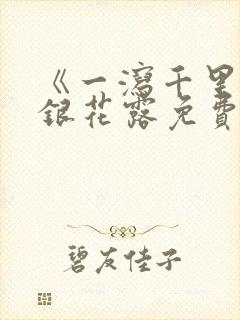 《一泻千里
银花露免费
碧友佳子